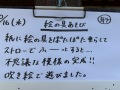 10/16(水) 絵の具あそび
紙に絵の具をぽたぽた垂らして
ストローでふーっすると…
不思議な模様の完成!!
吹き絵で遊びました。